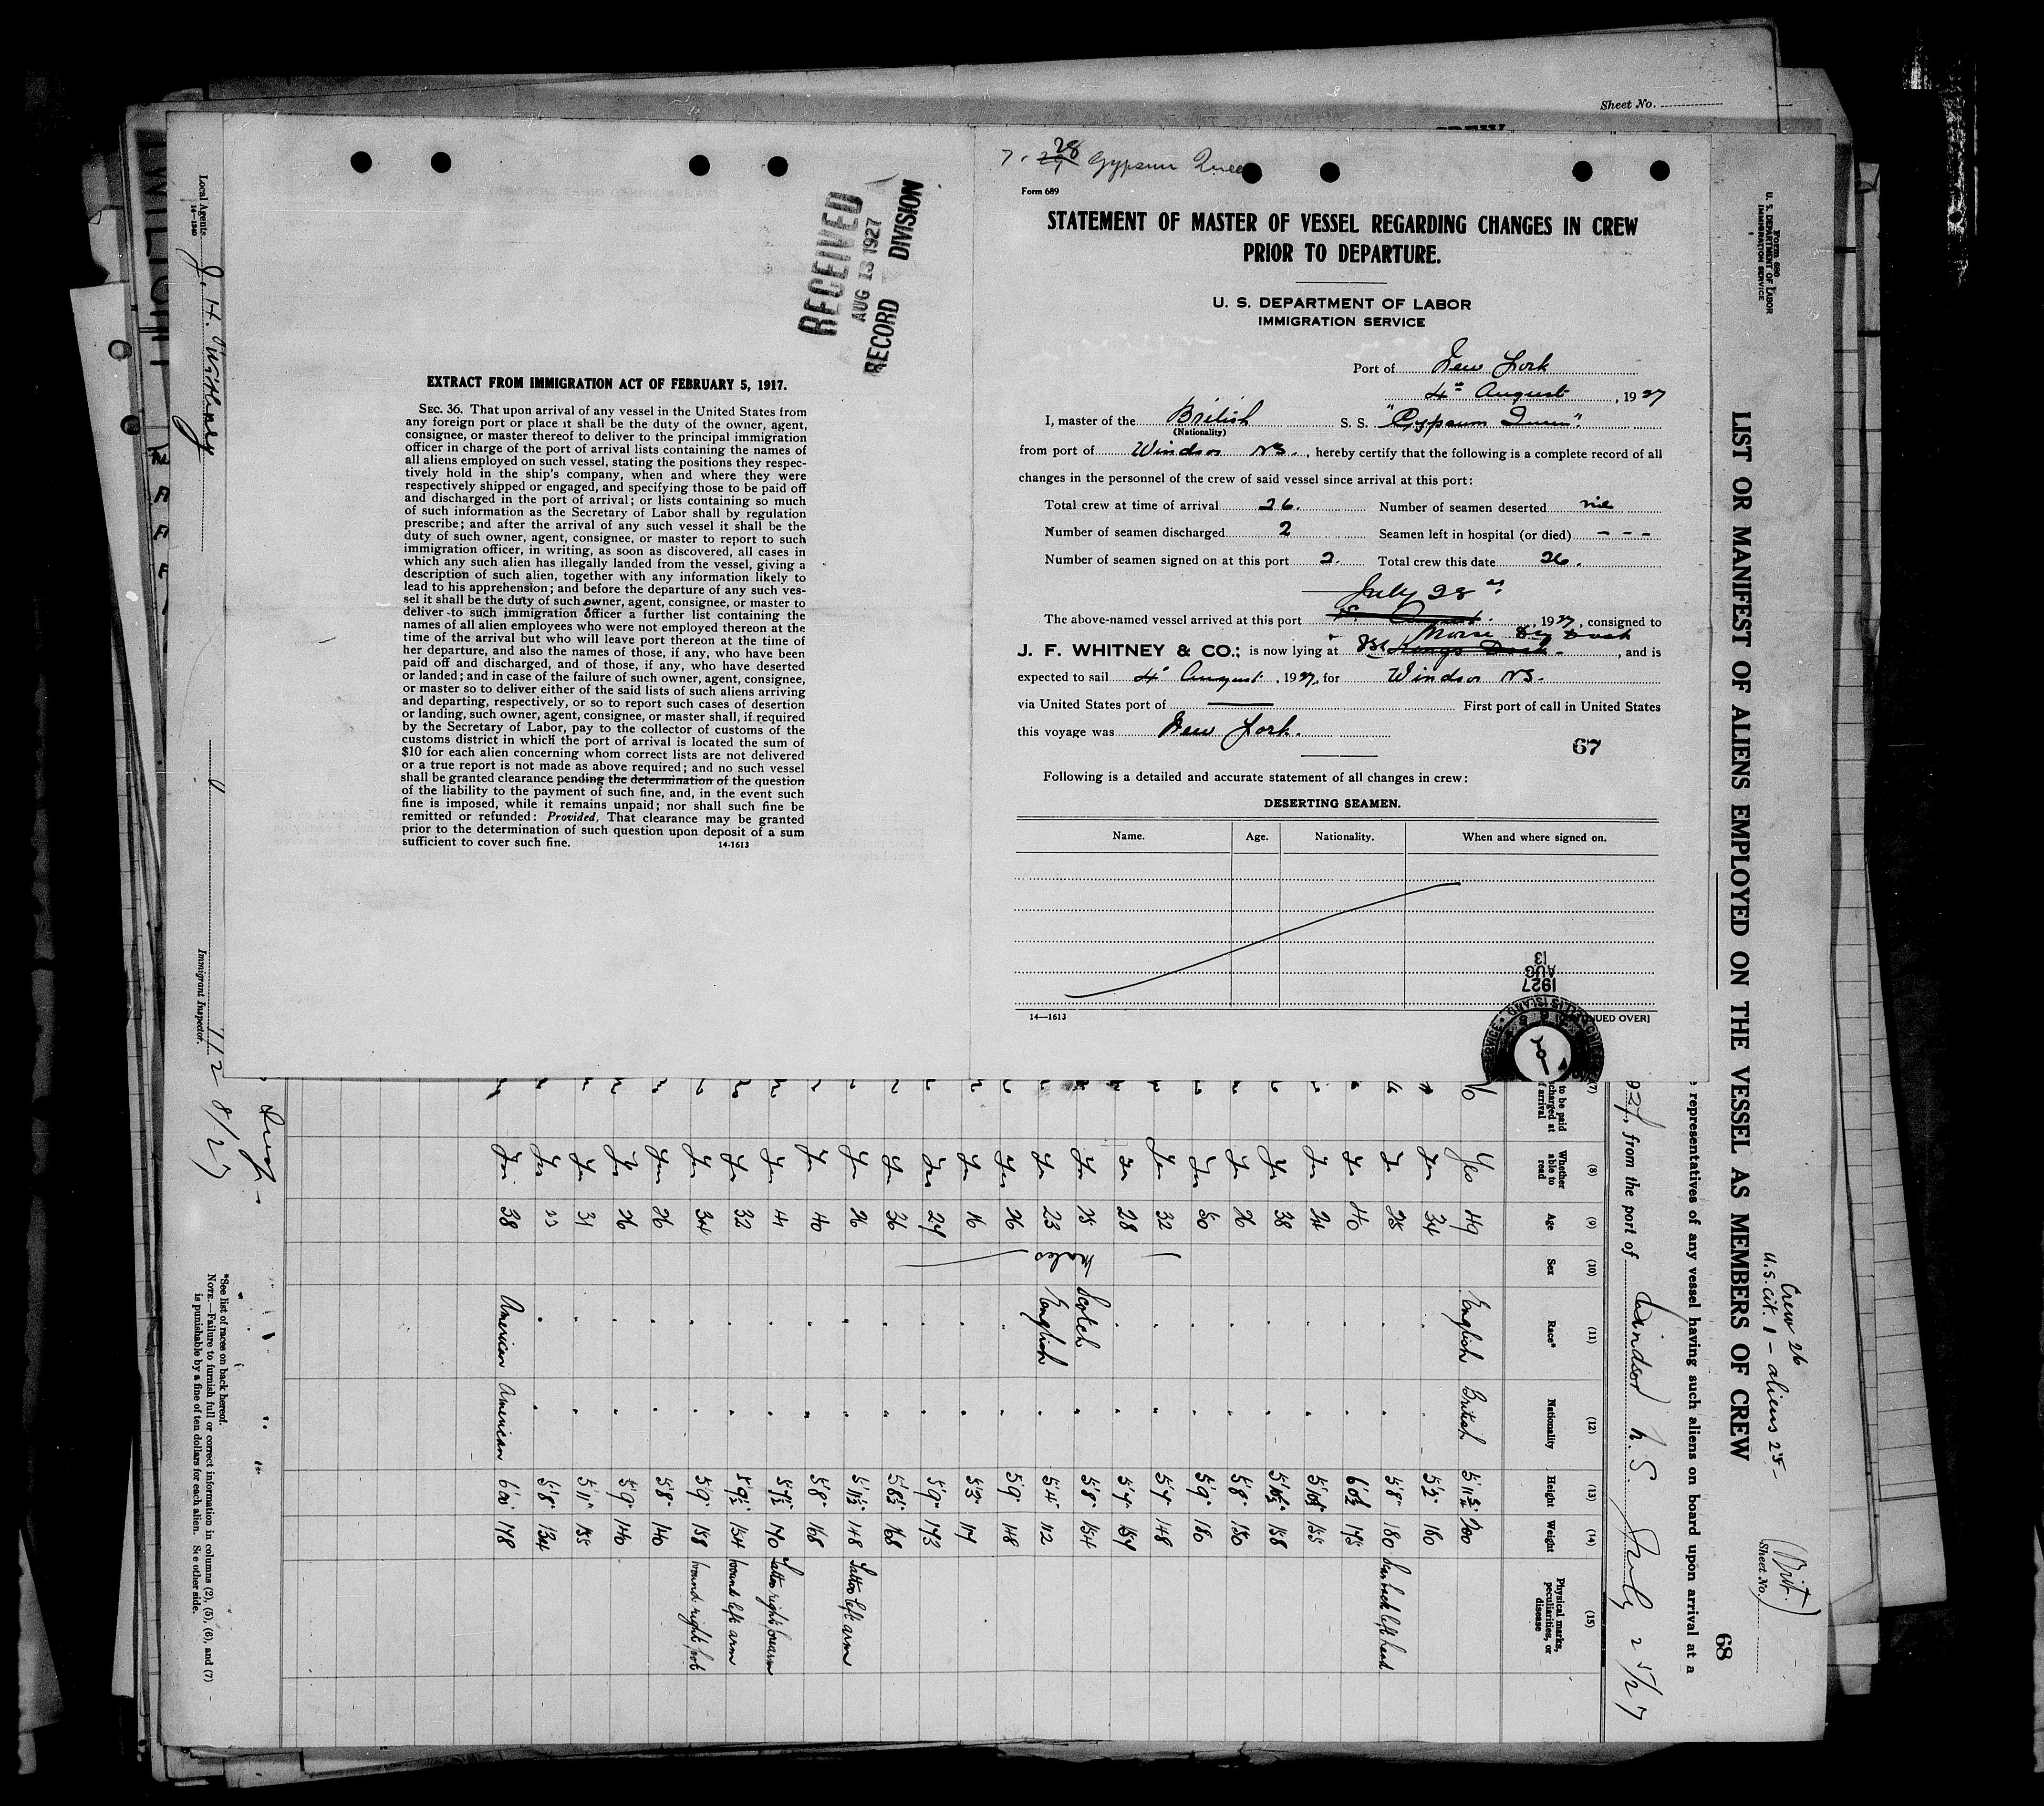 Sheet No.
7. 28 Gypsum Queen
Form 689
STATEMENT OF MASTER OF VESSEL REGARDING CHANGES IN CREW
PRIOR TO DEPARTURE.
U. S. DEPARTMENT OF LABOR
IMMIGRATION SERVICE
Port of New York
4th August, 1927
I, master of the British S. S. "Gypsum Queen".
(Nationality)
from port of Windsor NS., hereby certify that the following is a complete record of all
changes in the personnel of the crew of said vessel since arrival at this port:
Total crew at time of arrival 26. Number of seamen deserted nil
Number of seamen discharged 2 Seamen left in hospital (or died) - - -
Number of seamen signed on at this port 2. Total crew this date 26.
July 28th
The above-named vessel arrived at this port , 1927, consigned to
Morse Dry Dock
J. F. WHITNEY & CO.; is now lying at , and is
expected to sail 4th August, 1927, for Windsor NS.
via United States port of First port of call in United States
this voyage was New York.
67
Following is a detailed and accurate statement of all changes in crew:
DESERTING SEAMEN.
Name. Age. Nationality. When and where signed on.
14—1613
[CONTINUED OVER]
1927
AUG
13
RECEIVED
AUG 13 1927
RECORD DIVISION
EXTRACT FROM IMMIGRATION ACT OF FEBRUARY 5, 1917.
SEC. 36. That upon arrival of any vessel in the United States from
any foreign port or place it shall be the duty of the owner, agent,
consignee, or master thereof to deliver to the principal immigration
officer in charge of the port of arrival lists containing the names of
all aliens employed on such vessel, stating the positions they respec-
tively hold in the ship's company, when and where they were
respectively shipped or engaged, and specifying those to be paid off
and discharged in the port of arrival; or lists containing so much
of such information as the Secretary of Labor shall by regulation
prescribe; and after the arrival of any such vessel it shall be the
duty of such owner, agent, consignee, or master to report to such
immigration officer, in writing, as soon as discovered, all cases in
which any such alien has illegally landed from the vessel, giving a
description of such alien, together with any information likely to
lead to his apprehension; and before the departure of any such ves-
sel it shall be the duty of such owner, agent, consignee, or master to
deliver to such immigration officer a further list containing the
names of all alien employees who were not employed thereon at the
time of the arrival but who will leave port thereon at the time of
her departure, and also the names of those, if any, who have been
paid off and discharged, and of those, if any, who have deserted
or landed; and in case of the failure of such owner, agent, consignee,
or master so to deliver either of the said lists of such aliens arriving
and departing, respectively, or so to report such cases of desertion
or landing, such owner, agent, consignee, or master shall, if required
by the Secretary of Labor, pay to the collector of customs of the
customs district in which the port of arrival is located the sum of
$10 for each alien concerning whom correct lists are not delivered
or a true report is not made as above required; and no such vessel
shall be granted clearance pending the determination of the question
of the liability to the payment of such fine, and, in the event such
fine is imposed, while it remains unpaid; nor shall such fine be
remitted or refunded: Provided, That clearance may be granted
prior to the determination of such question upon deposit of a sum
sufficient to cover such fine.
14-1613
U. S. DEPARTMENT OF LABOR
IMMIGRATION SERVICE
Crew 26
U.S. cit. 1 – aliens 25 –
(Brit.)
Sheet No.
68
LIST OR MANIFEST OF ALIENS EMPLOYED ON THE VESSEL AS MEMBERS OF CREW
representatives of any vessel having such aliens on board upon arrival at a
, from the port of Windsor N. S. July 25/27
(7) (8) (9) (10) (11) (12) (13) (14) (15)
to be paid
Whether able to read
Age
Sex
Race*
Nationality
Height
Weight
Physical marks, peculiarities, or disease
Yes 49 English British 200
Yes 34 " " 5'2" 160
28 " " 5'8" 180
40 " " 175
24 " " 155
38 " " 158
26 " " 5'8" 150
50 " " 5'9" 180
32 " " 5'7" 148
28 " " 5'7"
Scotch " 5'8" 154
23 English " 5'4" 112
26 " " 5'9" 148
16 " " 5'3" 117
Yes 27 " " 5'9" 173
36 " " 168
26 " " 5'11½" 148 Tattoo left arm
40 " " 5'8" 168
41 " " 5'7½" 170 Tattoo right forearm
32 " " 5'9½" 154 wound left arm
34 " " 5'9" 158
26 " " 5'8" 140
26 " " 5'9" 140
31 " " 5'11" 155
Yes 23 " " 5'8" 134
38 American American 6'00" 178
Local Agents J. H. Whitney
14—1340
Immigrant Inspector.
*See list of races on back hereof.
NOTE.—Failure to furnish full or correct information in columns (2), (5), (6), and (7)
is punishable by a fine of ten dollars for each alien. See other side.